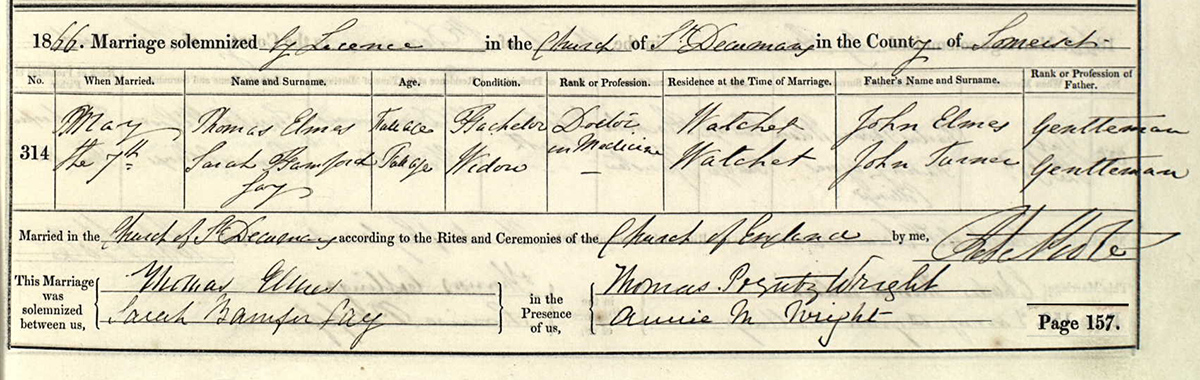 1866. Marriage solemnized by Licence in the Church of St Decumans in the County of Somerset
No. When Married. Name and Surname. Age. Condition. Rank or Profession. Residence at the Time of Marriage. Father's Name and Surname. Rank or Profession of Father.
314 May the 7th Thomas Elmes Full age Bachelor Doctor in Medicine Watchet John Elmes Gentleman
Sarah Bamford Jay Full age Widow — Watchet John Turner Gentleman
Married in the Church of St Decumans according to the Rites and Ceremonies of the Church of England by me,
This Marriage was solemnized between us, Thomas Elmes in the Presence of us, Thomas Poyntz Wright
Sarah Bamfor Jay Annie M Wright
Page 157.